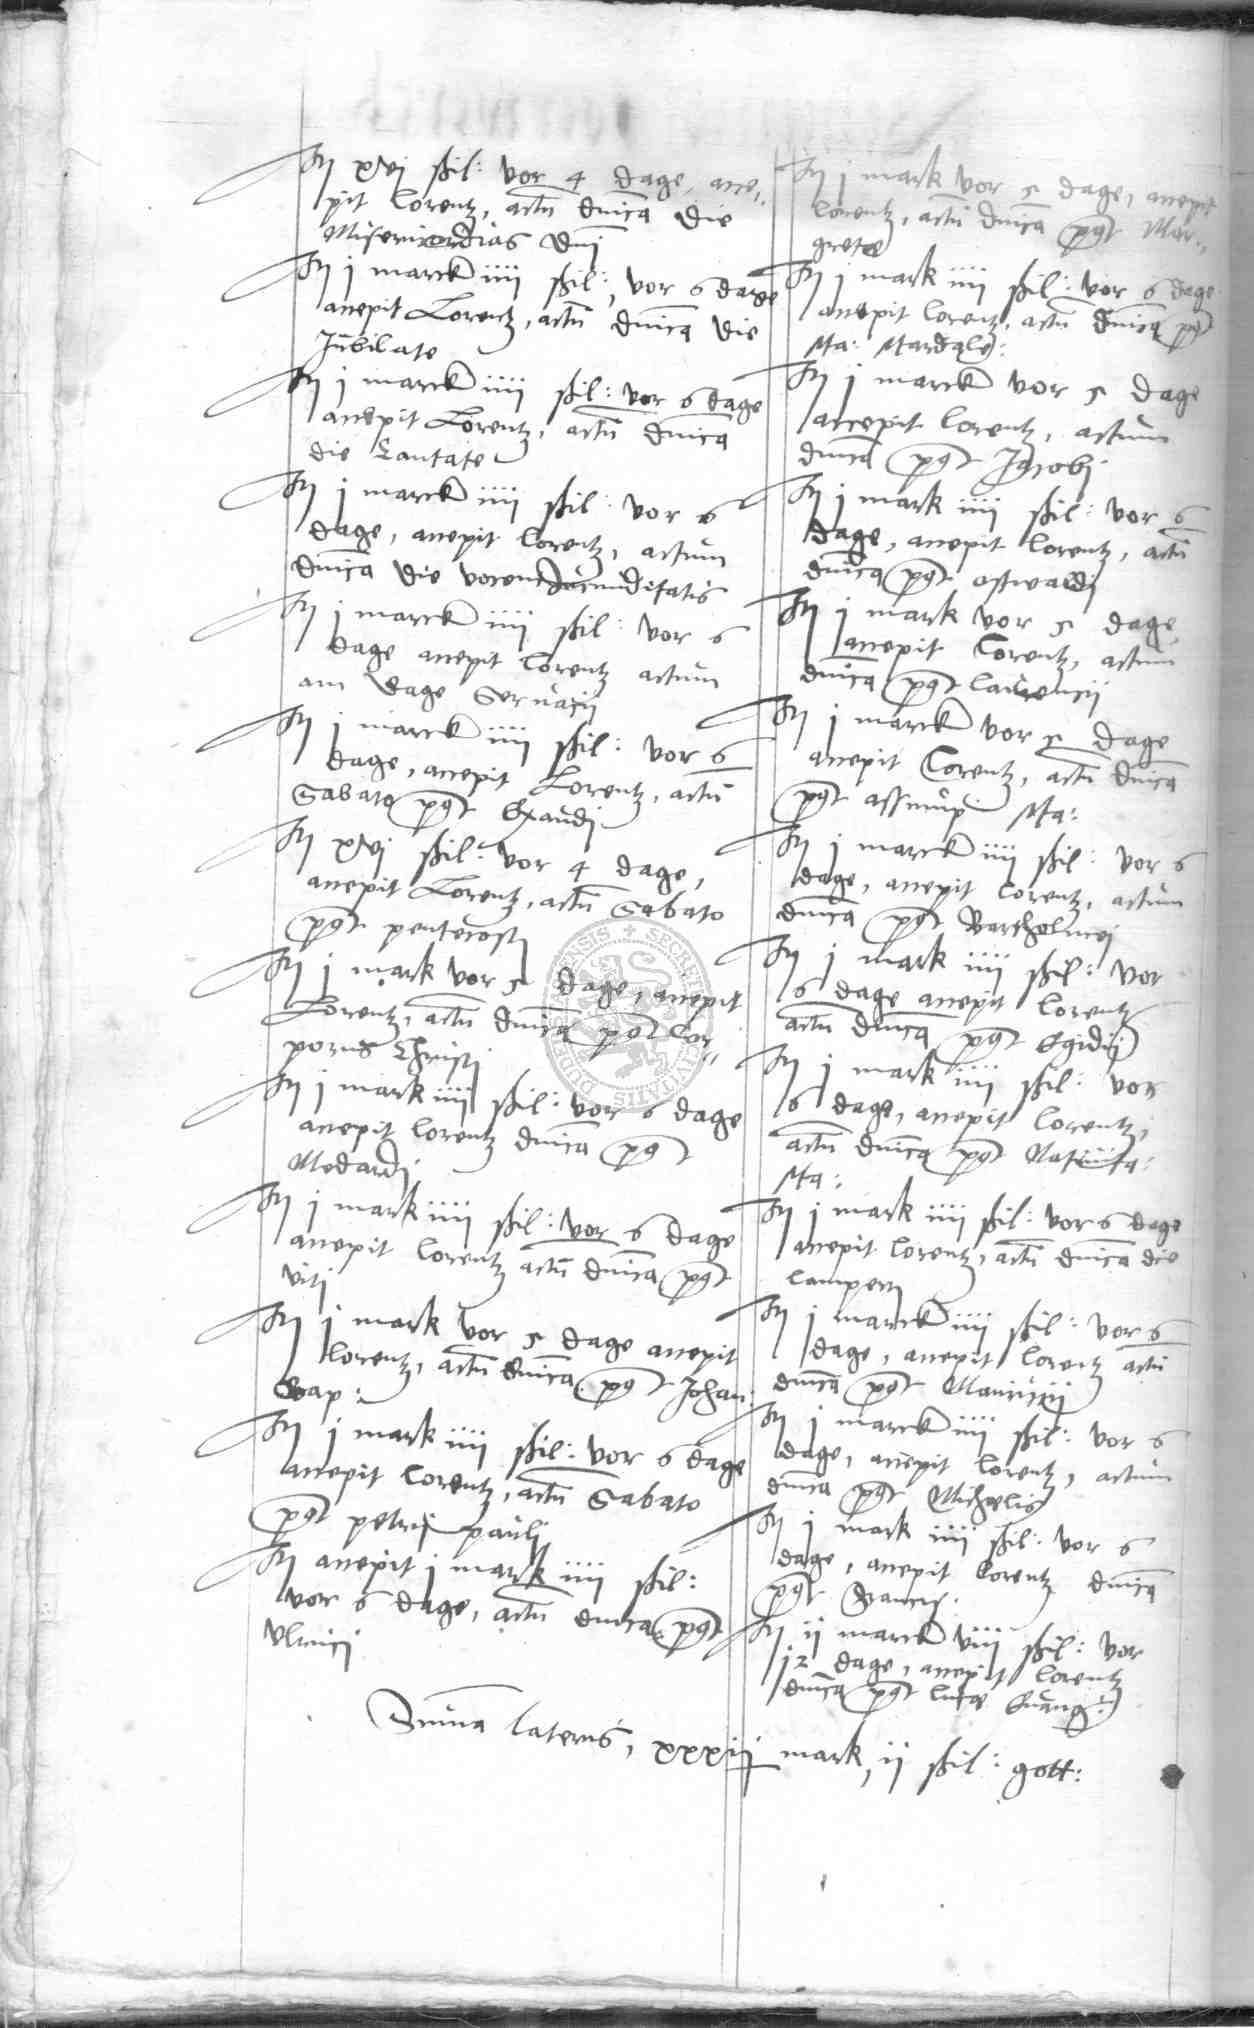 Itj xvj ßil: vor 4 dage, acce,,
pit Lorentz, actū dnīca die
Misericordias dnj
Itj j marck iiij ßil:, vor 6 dage
accepit Lorentz, actū dnīca die
Jubilate
Itj j marck iiij ßil: vor 6 dage
accepit Lorentz, actū dnīca
die Cantate
Itj j marck iiij ßil: vor 6
dage, accepit Lorentz, actum
dnīca die vocem Jucunditatis
Itj j marck iiij ßil: vor 6
dage accepit Lorentz actum
am dage Servacij
Itj j marck iiij ßil: vor 6
dage, accepit Lorentz, actū
Sabato post Exaudj
Itj xvj ßil: vor 4 dage,
accepit Lorentz, actū Sabato
post pentecost
Itj j mark vor 5 dage, accepit
Lorentz, actū dnīca post Cor,,
porus Christi
Itj j mark iiij ßil: vor 6 dage
accepit Lorentz dnīca post
Medardj
Itj j mark iiij ßil: vor 6 dage
accepit Lorentz actū dnīca post
viti
Itj j mark vor 5 dage accepit
Lorentz, actū dnīca post Johan:
Bap:
Itj j mark iiij ßil: vor 6 dage
accepit Lorentz, actū Sabato
post petri pauli
Itj accepit j mark iiij ßil:
vor 6 dage, actū dnīca post
Ulricij
Itj j mark vor 5 dage, accepit
Lorentz, actū dnīca post Mar,,
grete
Itj j mark iiij ßil: vor 6 dage
accepit Lorentz, actū dnīca post
Ma: Magdale:
Itj j marck vor 5 dage
accepit Lorentz, actum
dnīca post Jacobj
Itj j mark iiij ßil: vor 6
dage, accepit Lorentz, actū
dnīca post ostwaldj
Itj j mark vor 5 dage
accepit Lorentz, actum
dnīca post laurencij
Itj j marck vor 5 dage
accepit Lorentz, actū dnīca
post assump: Ma:
Itj j marck iiij ßil: vor 6
dage, accepit Lorentz, actum
dnīca post Bartholmej
Itj j mark iiij ßil: vor
6 dage accepit Lorentz
actū dnīca post Egidij
Itj j mark iiij ßil: vor
6 dage, accepit Lorentz,
actū dnīca post Nativita:
Ma:
Itj j mark iiij ßil: vor 6 dage
accepit Lorentz, actū dnīca die
lamperti
Itj j marck iiij ßil: vor 6
dage, accepit Lorentz actū
dnīca post Mauricij
Itj j marck iiij ßil: vor 6
dage, accepit Lorentz, actum
dnīca post Michelis
Itj j mark iiij ßil: vor 6
dage, accepit Lorentz dnīca
post
Itj ij marck viij ßil: vor
12 dage, accepit Lorentz
dnīca post luce Evang:
Summa lateris, xxxiij mark, ij ßil: gott:
SECRETUM CIVITATIS